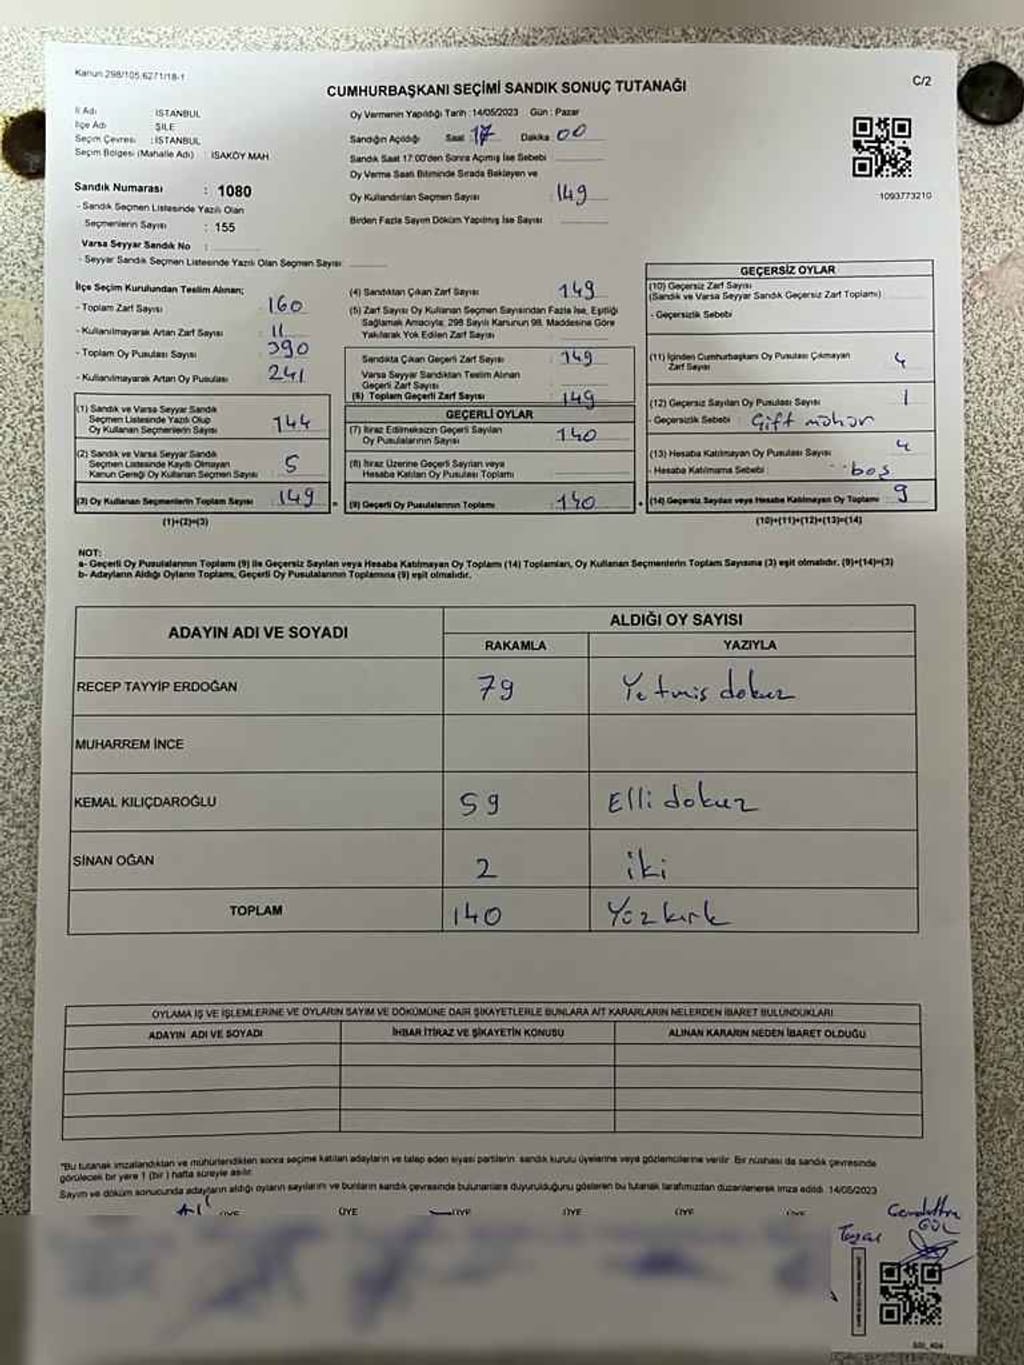 Kanun 298/105,6271/18-1
CUMHURBAŞKANI SEÇİMİ SANDIK SONUÇ TUTANAĞI
C/2
İl Adı : İSTANBUL
İlçe Adı : ŞİLE
Seçim Çevresi : İSTANBUL
Seçim Bölgesi (Mahalle Adı) : İSAKÖY MAH.
Sandık Numarası : 1080
- Sandık Seçmen Listesinde Yazılı Olan
Seçmenlerin Sayısı : 155
Varsa Seyyar Sandık No :
- Seyyar Sandık Seçmen Listesinde Yazılı Olan Seçmen Sayısı:
Oy Vermenin Yapıldığı Tarih :14/05/2023 Gün : Pazar
Sandığın Açıldığı Saat : 17 Dakika : 00
Sandık Saat 17:00'den Sonra Açılmış İse Sebebi
Oy Verme Saati Bitiminde Sırada Bekleyen ve
Oy Kullandırılan Seçmen Sayısı : 149
Birden Fazla Sayım Döküm Yapılmış İse Sayısı :
1093773210
İlçe Seçim Kurulundan Teslim Alınan;
- Toplam Zarf Sayısı : 160
- Kullanılmayarak Artan Zarf Sayısı : 11
- Toplam Oy Pusulası Sayısı : 390
- Kullanılmayarak Artan Oy Pusulası : 241
(1) Sandık ve Varsa Seyyar Sandık
Seçmen Listesinde Yazılı Olup
Oy Kullanan Seçmenlerin Sayısı : 144
(2) Sandık ve Varsa Seyyar Sandık
Seçmen Listesinde Kayıtlı Olmayan
Kanun Gereği Oy Kullanan Seçmen Sayısı : 5
(3) Oy Kullanan Seçmenlerin Toplam Sayısı : 149
(1)+(2)=(3)
(4) Sandıktan Çıkan Zarf Sayısı : 149
(5) Zarf Sayısı Oy Kullanan Seçmen Sayısından Fazla İse, Eşitliği
Sağlamak Amacıyla; 298 Sayılı Kanunun 98. Maddesine Göre
Yakılarak Yok Edilen Zarf Sayısı :
Sandıkta Çıkan Geçerli Zarf Sayısı : 149
Varsa Seyyar Sandıktan Teslim Alınan
Geçerli Zarf Sayısı :
(6) Toplam Geçerli Zarf Sayısı : 149
GEÇERLİ OYLAR
(7) İtiraz Edilmeksizin Geçerli Sayılan
Oy Pusulalarının Sayısı : 140
(8) İtiraz Üzerine Geçerli Sayılan veya
Hesaba Katılan Oy Pusulası Toplamı :
(9) Geçerli Oy Pusulalarının Toplamı : 140
GEÇERSİZ OYLAR
(10) Geçersiz Zarf Sayısı
(Sandık ve Varsa Seyyar Sandık Geçersiz Zarf Toplamı)
- Geçersizlik Sebebi
(11) İçinden Cumhurbaşkanı Oy Pusulası Çıkmayan
Zarf Sayısı 4
(12) Geçersiz Sayılan Oy Pusulası Sayısı 1
- Geçersizlik Sebebi : Çift mühür
(13) Hesaba Katılmayan Oy Pusulası Sayısı 4
- Hesaba Katılmama Sebebi : boş
(14) Geçersiz Sayılan veya Hesaba Katılmayan Oy Toplamı : 9
(10)+(11)+(12)+(13)=(14)
NOT:
a- Geçerli Oy Pusulalarının Toplamı (9) ile Geçersiz Sayılan veya Hesaba Katılmayan Oy Toplamı (14) Toplamları, Oy Kullanan Seçmenlerin Toplam Sayısına (3) eşit olmalıdır. (9)+(14)=(3)
b- Adayların Aldığı Oyların Toplamı, Geçerli Oy Pusulalarının Toplamına (9) eşit olmalıdır.
ADAYIN ADI VE SOYADI
ALDIĞI OY SAYISI
RAKAMLA YAZIYLA
RECEP TAYYİP ERDOĞAN 79 Yetmiş dokuz
MUHARREM İNCE
KEMAL KILIÇDAROĞLU 59 Elli dokuz
SİNAN OĞAN 2 iki
TOPLAM 140 Yüzkırk
OYLAMA İŞ VE İŞLEMLERİNE VE OYLARIN SAYIM VE DÖKÜMÜNE DAİR ŞİKAYETLERLE BUNLARA AİT KARARLARIN NELERDEN İBARET BULUNDUKLARI
ADAYIN ADI VE SOYADI İHBAR İTİRAZ VE ŞİKAYETİN KONUSU ALINAN KARARIN NEDEN İBARET OLDUĞU
*Bu tutanak imzalandıktan ve mühürlendikten sonra seçime katılan adayların ve talep eden siyasi partilerin sandık kurulu üyelerine veya gözlemcilerine verilir. Bir nüshası da sandık çevresinde
görülecek bir yere 1 (bir) hafta süreyle asılır.
Sayım ve döküm sonucunda adayların aldığı oyların sayılarını ve bunların sandık çevresinde bulunanlara duyurulduğunu gösteren bu tutanak tarafımızdan düzenlenerek imza edildi. 14/05/2023
ÜYE ÜYE ÜYE ÜYE ÜYE ÜYE
GÜL